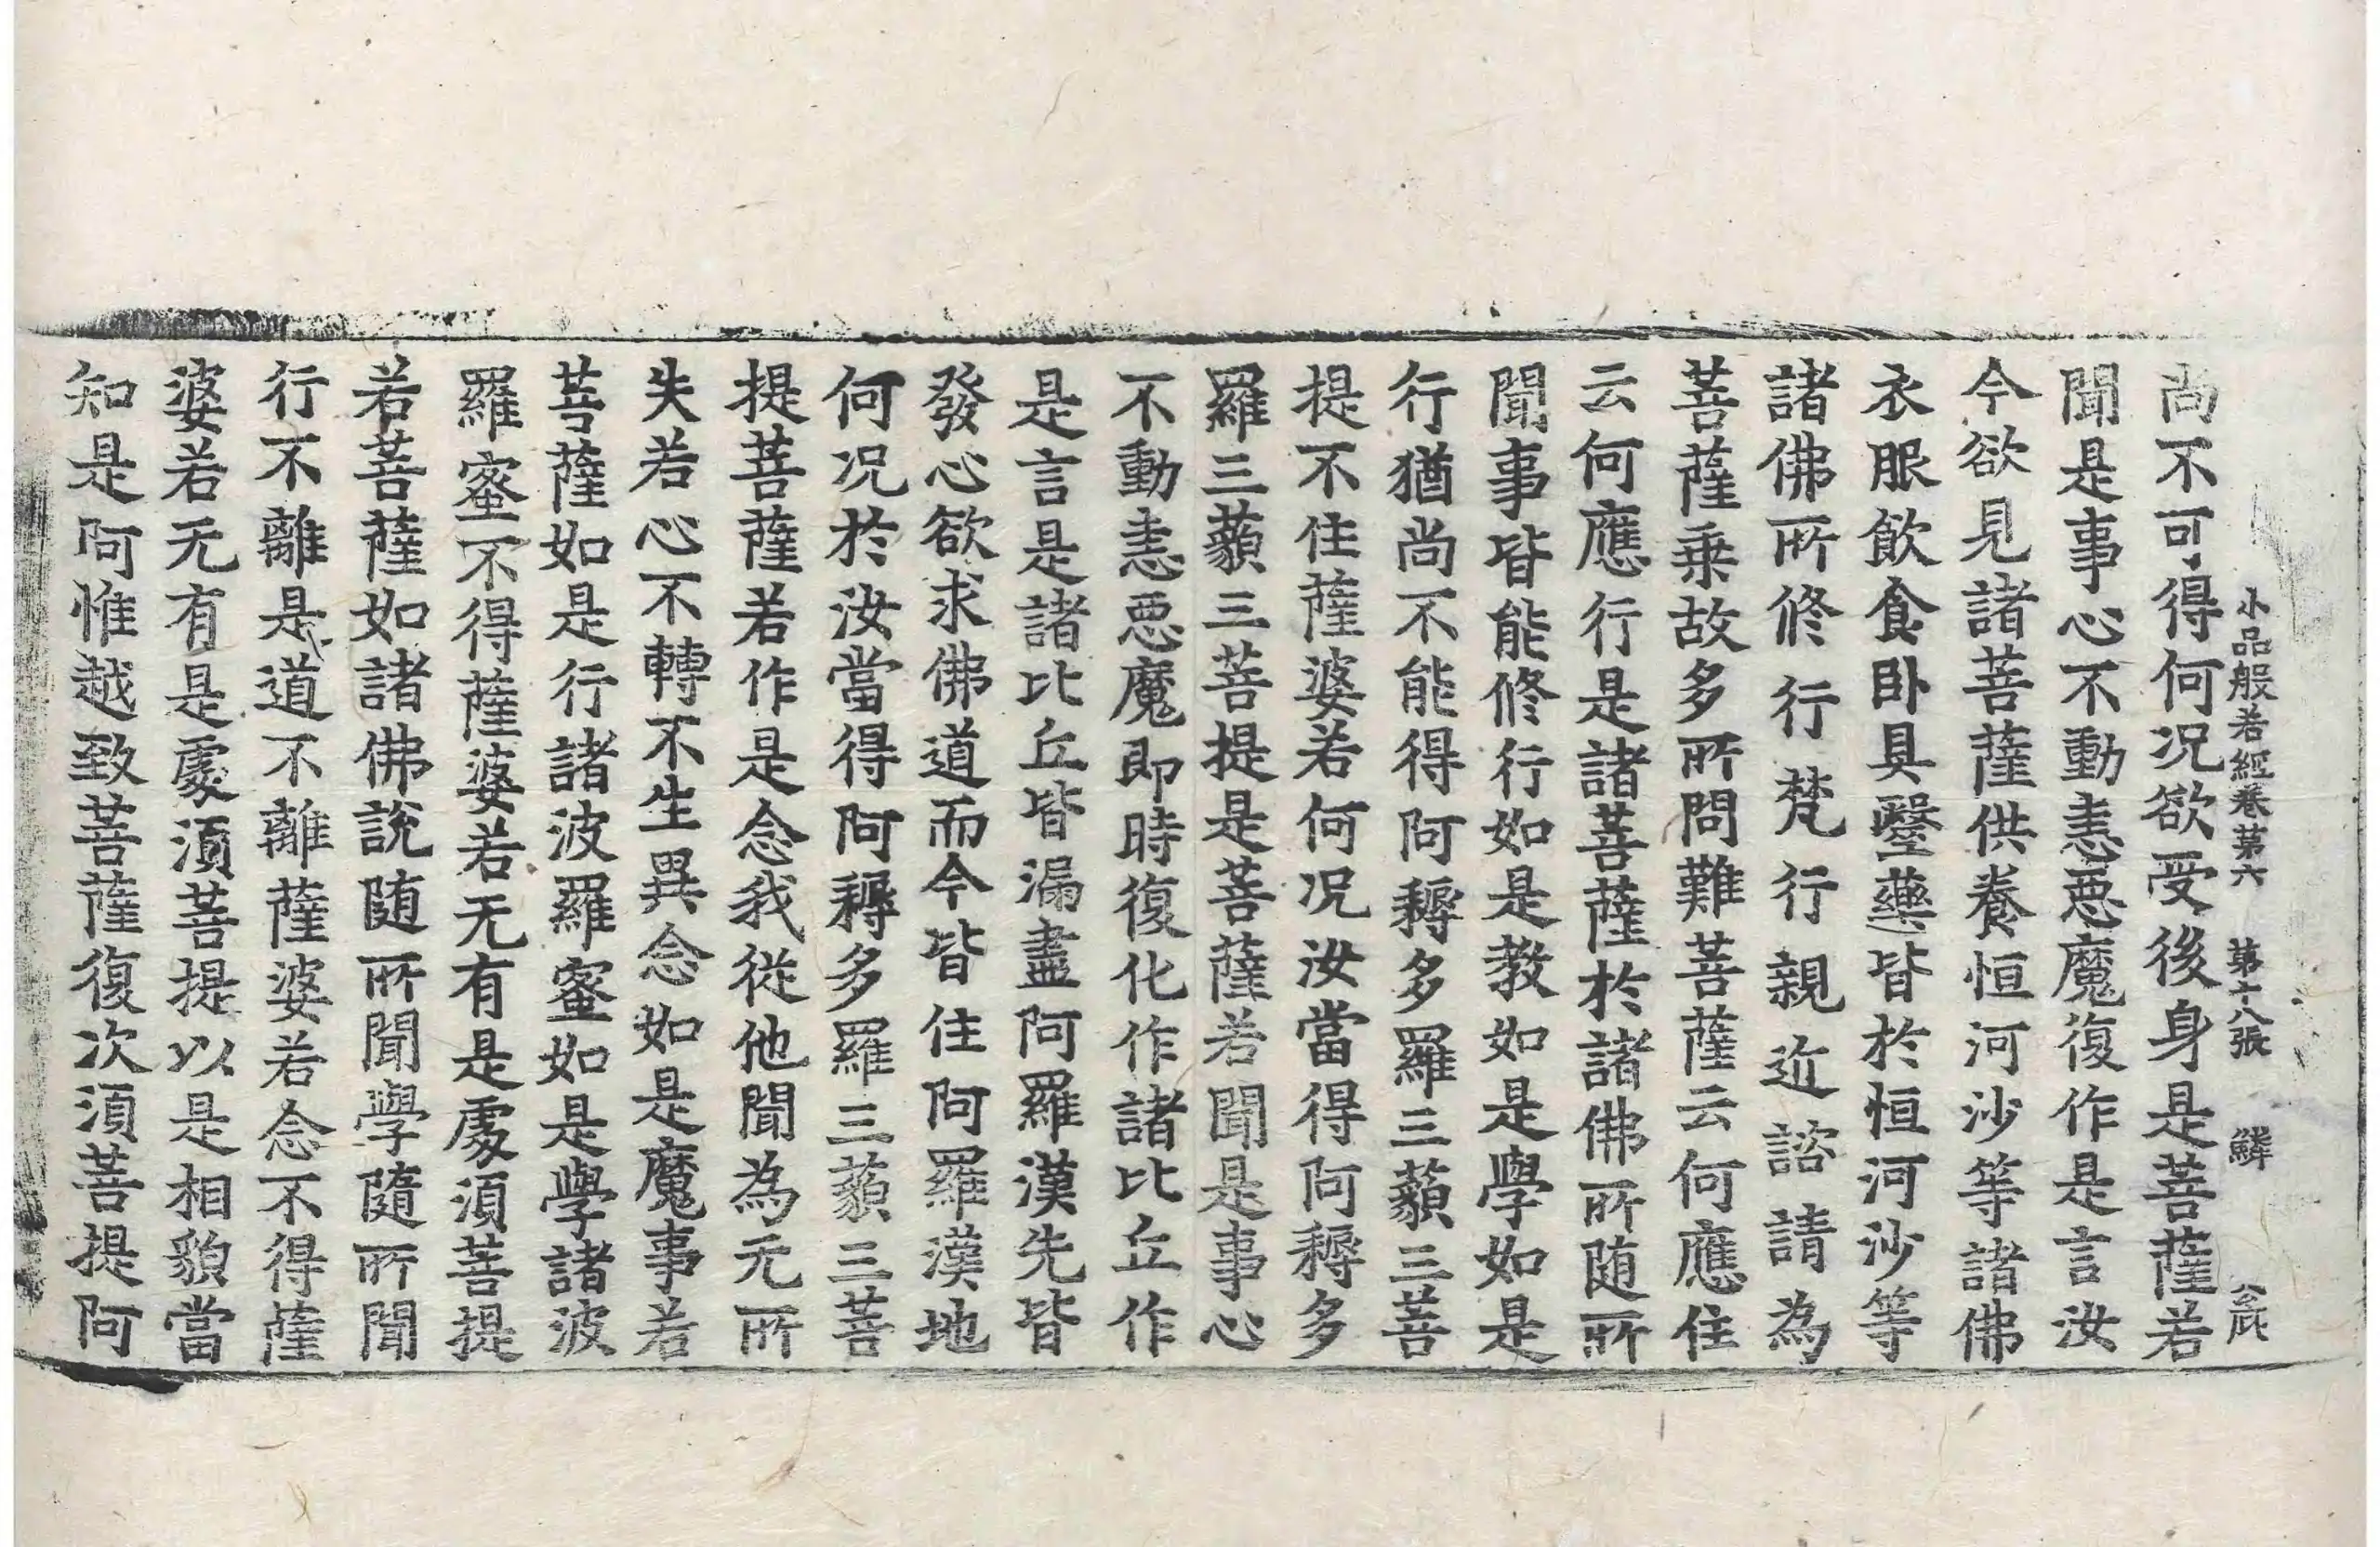 小品般若經卷第六　第十八張　鱗
尚不可得何况欲受後身是菩薩若
聞是事心不動恚惡魔復作是言汝
今欲見諸菩薩供養恒河沙等諸佛
衣服飲食卧具醫藥皆於恒河沙等
諸佛所修行梵行親近諮請為
菩薩乗故多所問難菩薩云何應住
云何應行是諸菩薩於諸佛所随所
聞事皆能修行如是教如是學如是
行猶尚不能得阿耨多羅三藐三菩
提不住薩婆若何况汝當得阿耨多
羅三藐三菩提是菩薩若聞是事心
不動恚惡魔即時復化作諸比丘作
是言是諸比丘皆漏盡阿羅漢先皆
發心欲求佛道而今皆住阿羅漢地
何况於汝當得阿耨多羅三藐三菩
提菩薩若作是念我從他聞為无所
失若心不轉不生異念如是魔事若
菩薩如是行諸波羅蜜如是學諸波
羅蜜不得薩婆若无有是處湏菩提
若菩薩如諸佛說随所聞學隨所聞
行不離是道不離薩婆若念不得薩
婆若无有是處湏菩提以是相貌當
知是阿惟越致菩薩復次湏菩提阿